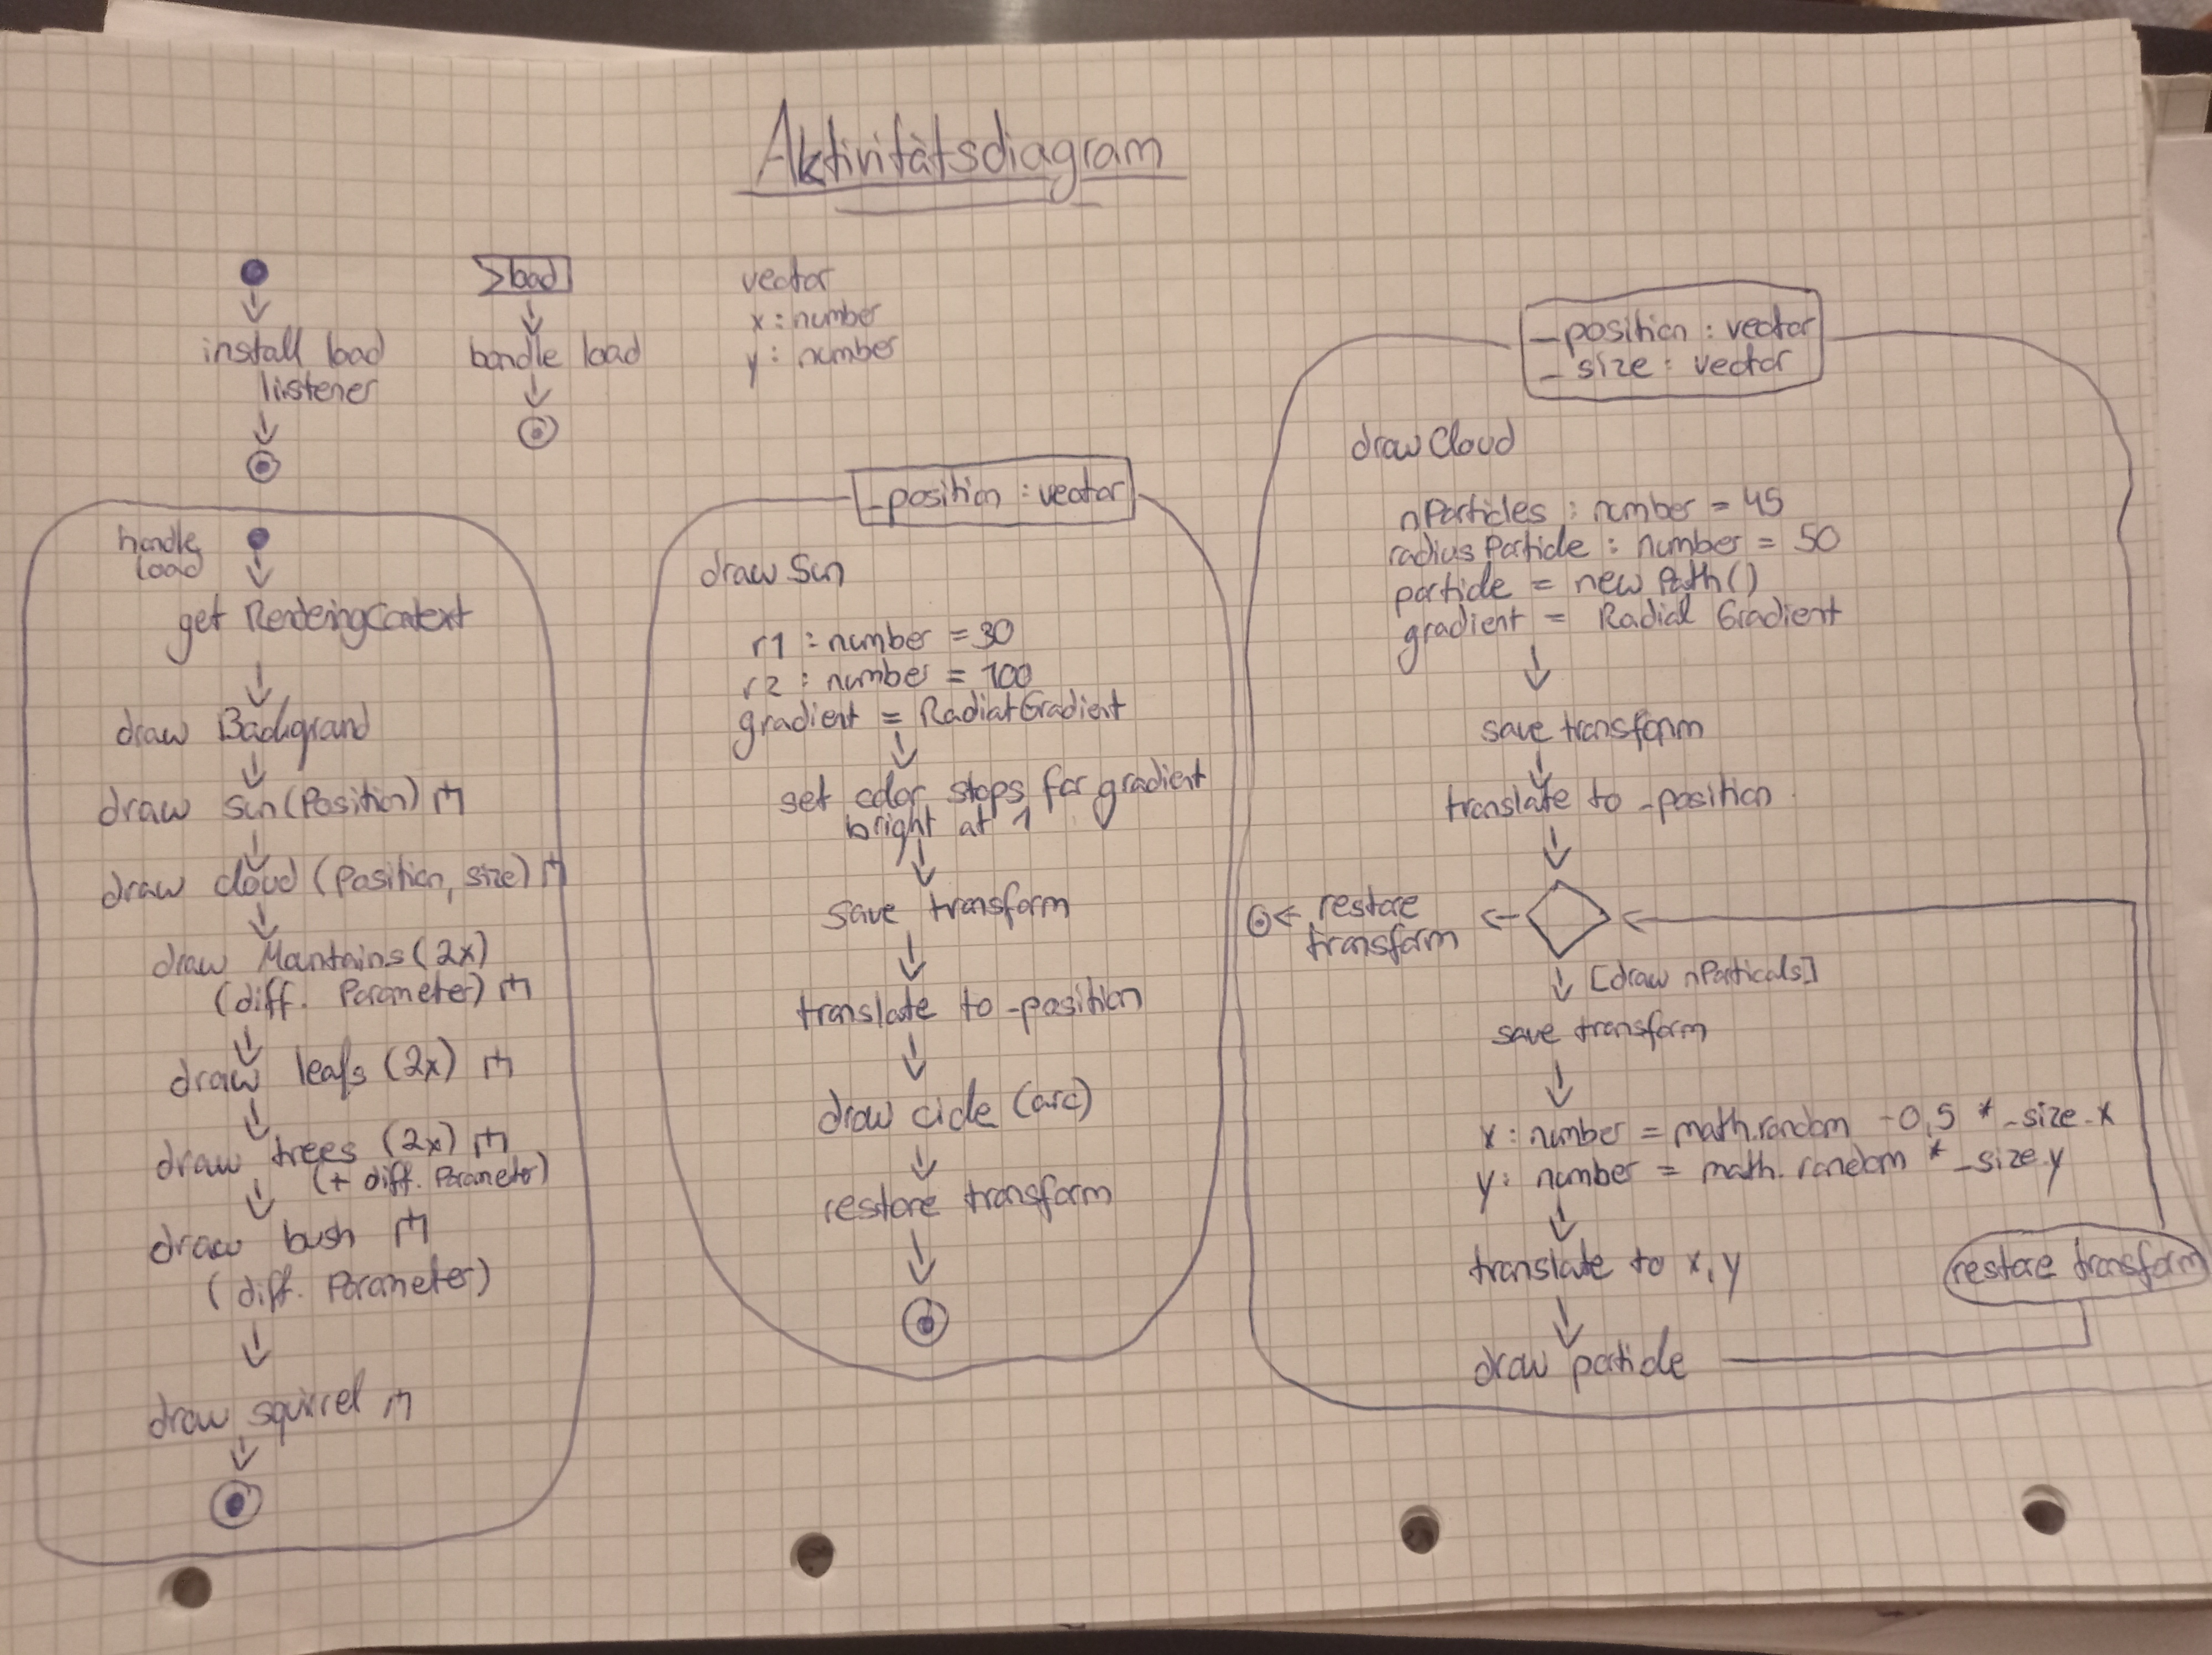 Aktivitätsdiagram
install load
listener
load
handle load
vector
x : number
y : number
handle
load
get RenderingContext
draw Background
draw sun (Position)
draw cloud (Position, size)
draw Mountains (2x)
(diff. Parameter)
draw leafs (2x)
draw trees (2x)
(+ diff. Parameter)
draw bush
(diff. Parameter)
draw squirrel
_position : vector
draw Sun
r1 : number = 30
r2 : number = 100
gradient = RadialGradient
set color stops for gradient
bright at 1
save transform
translate to _position
draw cicle (arc)
restore transform
_position : vector
_size : vector
draw Cloud
nParticles : number = 45
radius Particle : number = 50
particle = new Path()
gradient = Radial Gradient
save transform
translate to _position
restore
transform
[draw nParticals]
save transform
x : number = math.random - 0,5 * _size.x
y : number = math.random * _size.y
translate to x, y
restore transform
draw particle